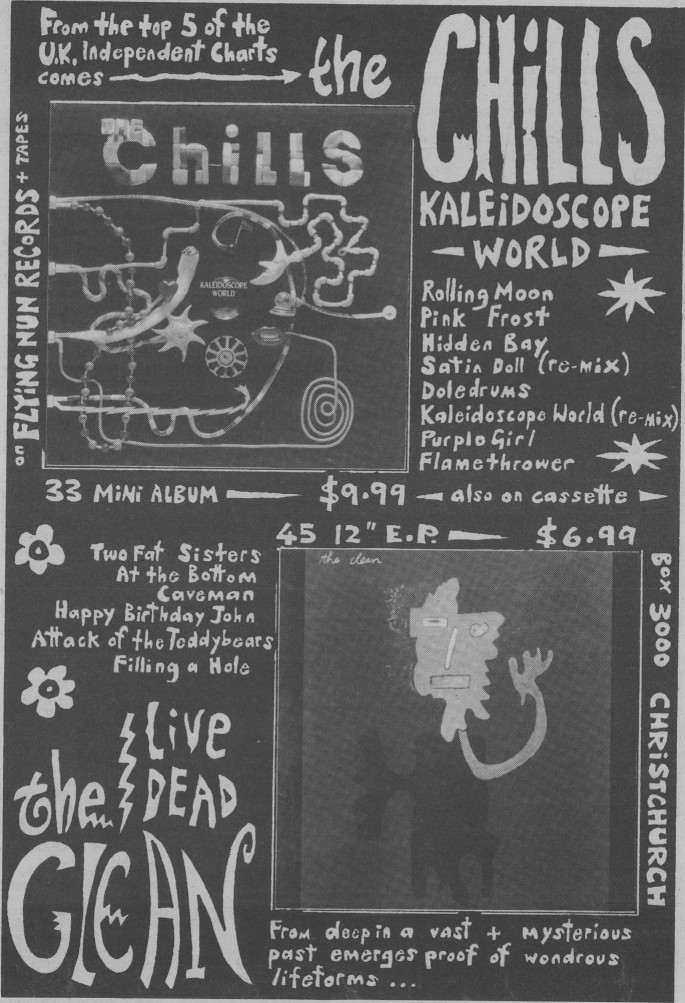 From the top 5 of the
U.K. Independent Charts
comes
the
CHiLLS
KALEiDOSCOPE
WORLD
on FLYiNG NUN RECORDS + TAPES
THE
ChiLLS
KALEIDOSCOPE
WORLD
Rolling Moon
Pink Frost
Hidden Bay
Satin Doll (re-mix)
Doledrums
Kaleidoscope World (re-mix)
Purple Girl
Flamethrower
33 MiNi ALBUM $9.99 also on cassette
45 12" E.P. $6.99
Two Fat Sisters
At the Bottom
Caveman
Happy Birthday John
Attack of the Teddybears
Filling a Hole
the clean
BOX 3000 CHRiSTCHURCH
LiVE
DEAD
the
CLEAN
From deep in a vast + mysterious
past emerges proof of wondrous
lifeforms ...